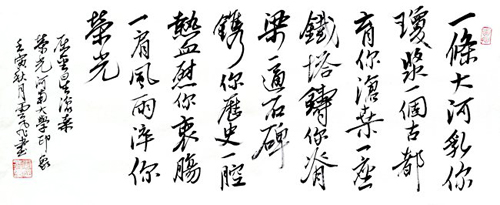 一條大河乳你
瓊漿一個古都
育你滄桑一座
鐵塔鑄你脊
梁一通石碑
鐫你歷史一腔
熱血慰你衷腸
一肩風雨淬你
榮光
屈金星
榮光河南大學印象
壬寅秋月雲飛書